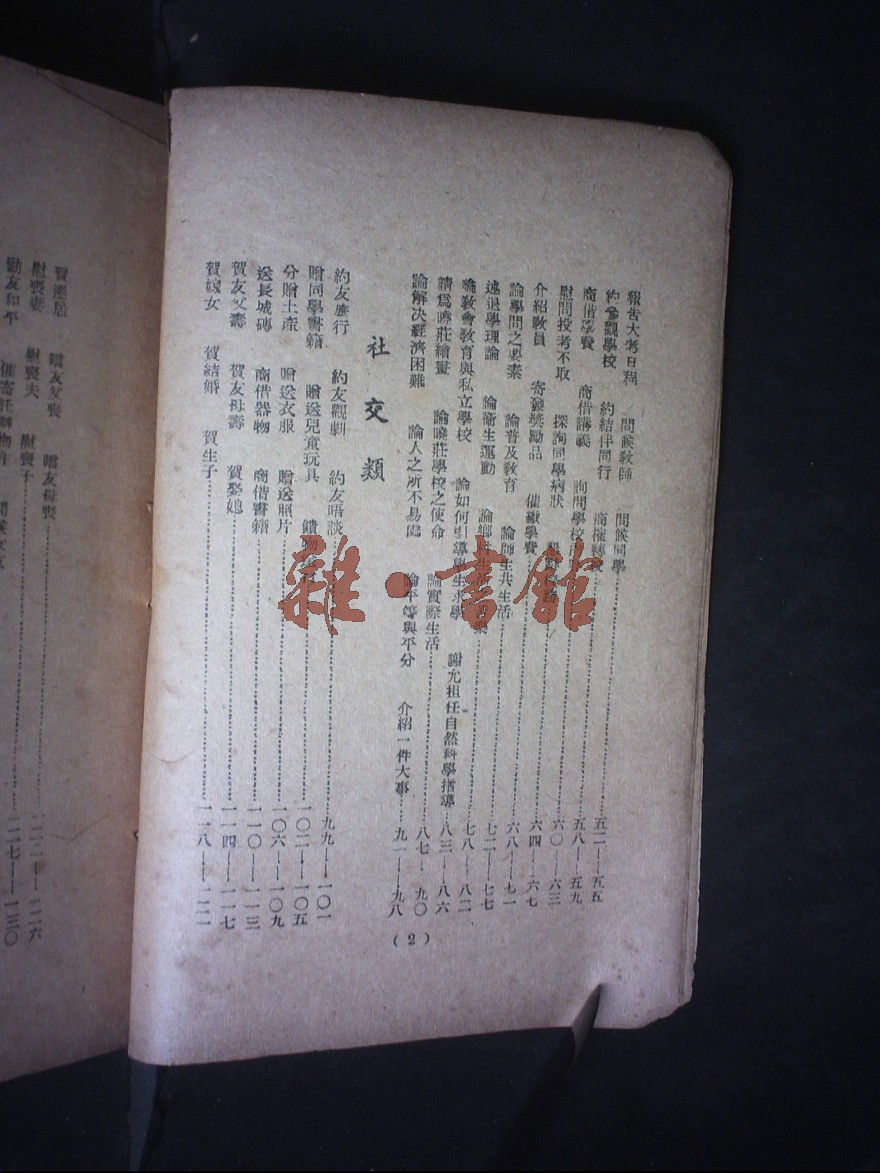 報告大考日程 問候教師 問候同學
約參觀學校 約結伴同行 商 五二——五五
商借學費 商借講義 詢問學校 五八——五九
慰問投考不取 探詢同學病狀 六〇——六三
介紹教員 寄發獎勵品 催繳學費 六四——六七
論學問之要素 論普及教育 論師生共生活 六八——七一
述退學理論 論衛生運動 論鄉 七二——七七
論教會教育與私立學校 論如何引導學生求學 七八——八二
請爲曉莊繪畫 論曉莊學校之使命 論實際生活 謝允担任自然科學指導 八三——八六
論解決經濟困難 論人之所不易處 論平等與平分 介紹一件大事 八七——九〇
九一——九八
社交類
約友旅行 約友觀劇 約友晤談 九九——一〇一
贈同學書籍 贈送兒童玩具 饋物 一〇二——一〇五
分贈土產 贈送衣服 贈送照片 一〇六——一〇九
送長城磚 商借器物 商借書籍 一一〇——一一三
賀友父壽 賀友母壽 賀娶媳 一一四——一一七
賀嫁女 賀結婚 賀生子 一一八——一二一
(2)
賀遷居 唁友父喪 唁友母喪
慰喪妻 慰喪夫 慰喪子 一二二——一二六
勸友和平 一二七——一三〇
雜·書館